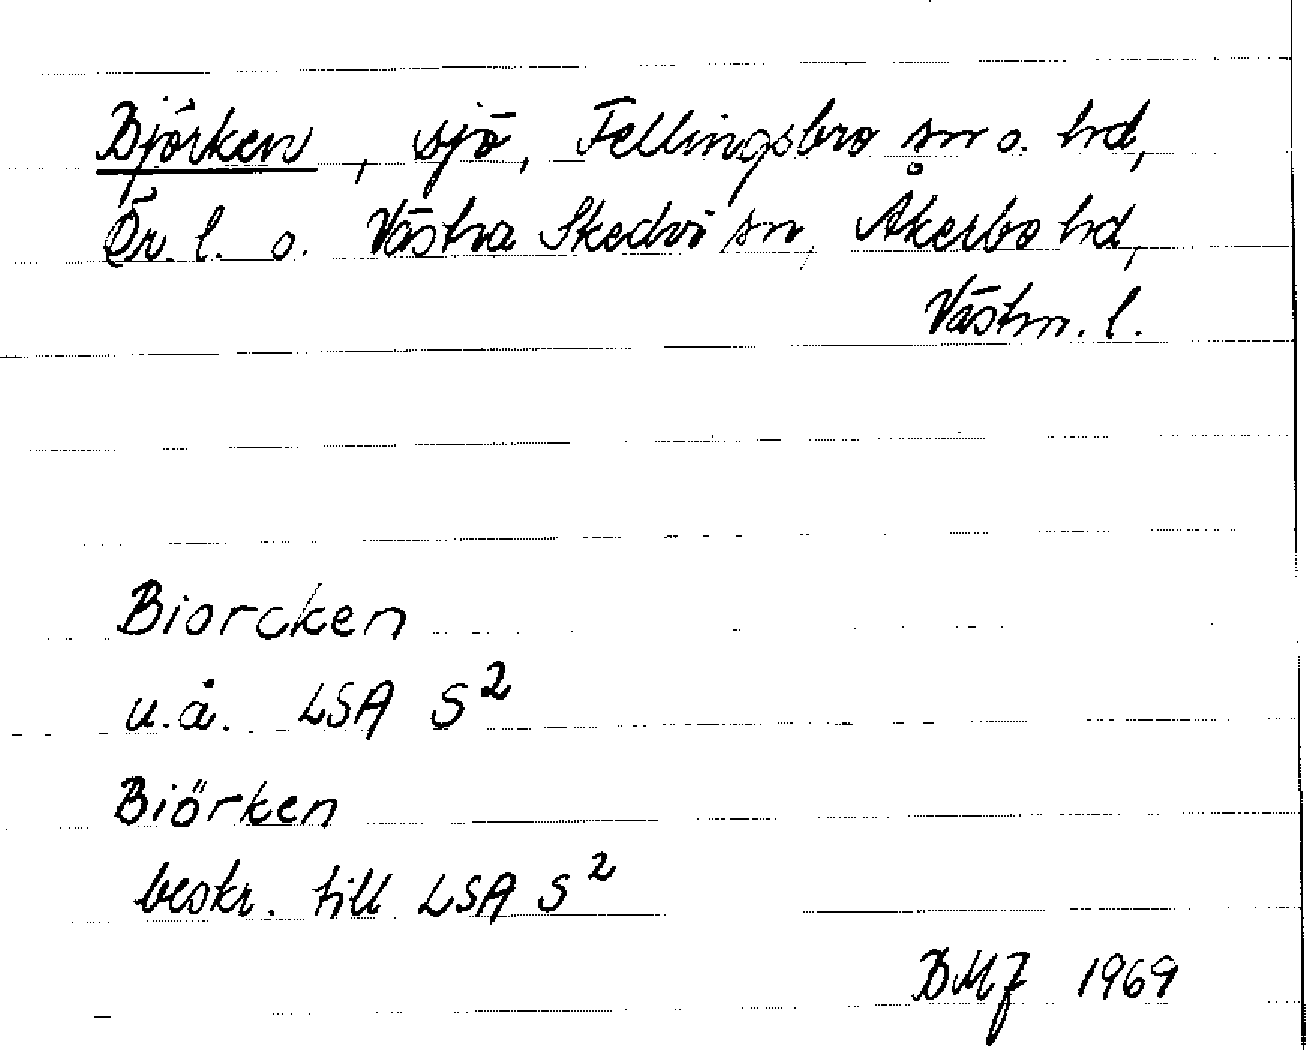 Björken, sjö, Fellingsbro sn o. hd,
Ör. l. o. Västra Skedvi sn, Åkerbo hd,
Västm. l.
Biorcken
u.å. LSA S²
Biörken
beskr. till LSA S²
BMJ 1969